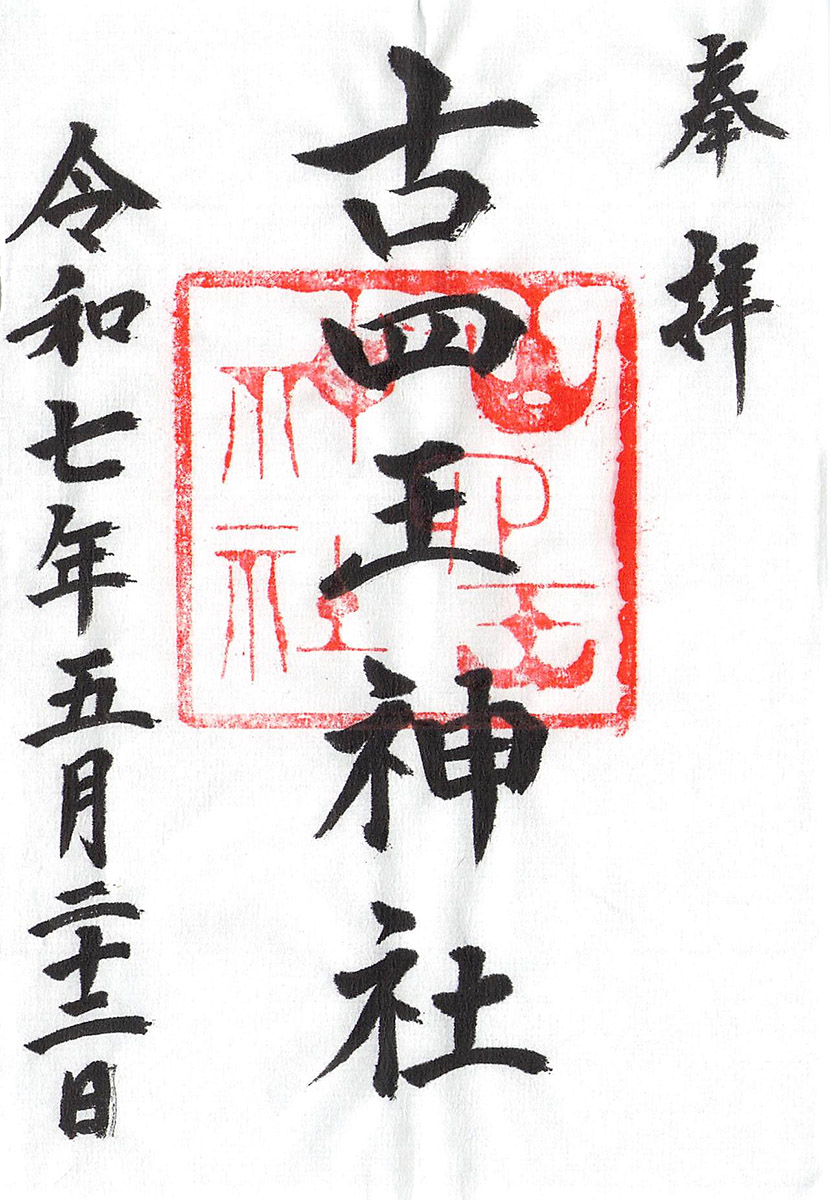 奉拝
古四王神社
令和七年五月二十二日
古四王
神社